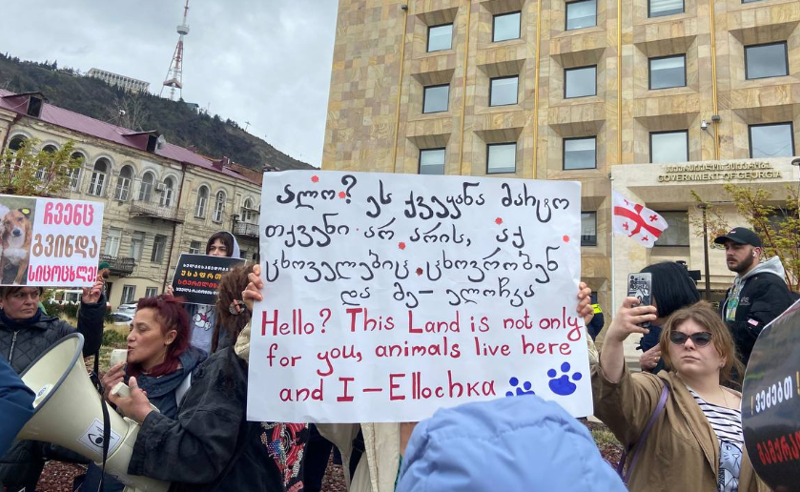 საქართველოს მთავრობა
GOVERNMENT OF GEORGIA
ჩვენც
გვინდა
სიცოცხლე!
ალო? ეს ქვეყანა მარტო
თქვენი არ არის, აქ
ცხოველებიც ცხოვრობენ
და მე– ელოჩკა
Hello? This Land is not only
for you, animals live here
and I – Ellochka